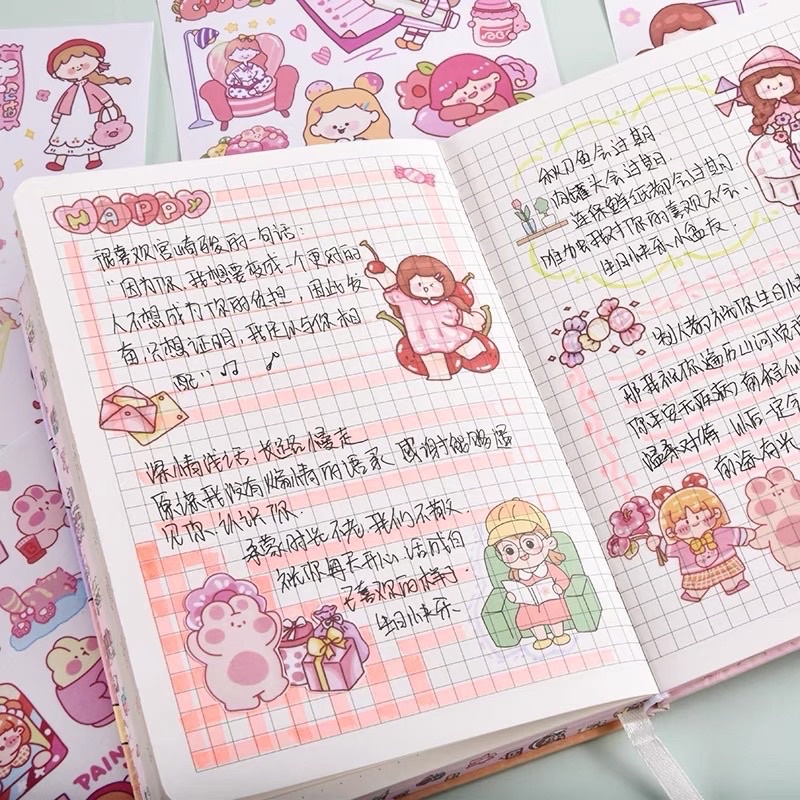 HAPPY
很喜欢宫崎骏的一句话:
"因为你,我想要变成一个更好的
人不想成为你的负担,因此发
奋,只想证明,我足以与你相
配"
深情浅话,长路慢走
原谅我没有煽情的语录 感谢能够遇
见你 认识你
承蒙时光不老 我们不散
祝你每天开心 活成自
己喜欢的样子
生日快乐
秋刀鱼会过期
肉罐头会过期
连保鲜纸都会过期
唯力我对你的喜欢不会
生日快乐小盆友
别人都祝你生日快
那我祝你遍历山河觉
你平安无疾病 有趁
温柔对待 以后一定
有海有光
PAIN